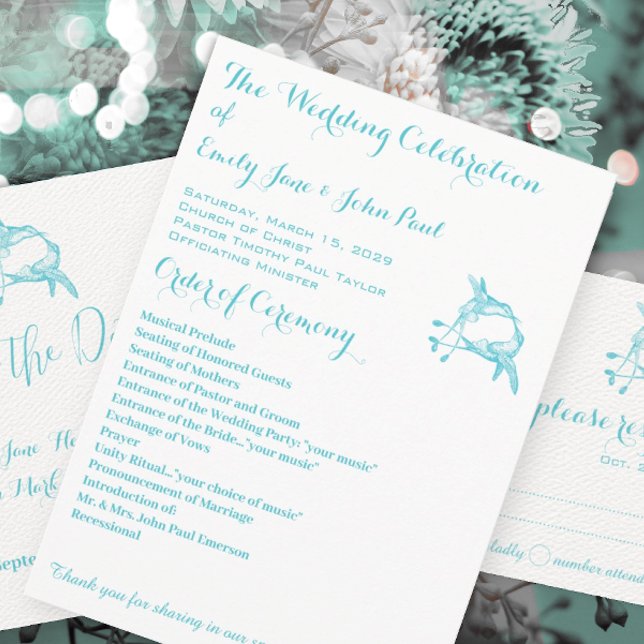 The Wedding Celebration
of
Emily Jane & John Paul
Saturday, March 15, 2029
Church of Christ
Pastor Timothy Paul Taylor
Officiating Minister
Order of Ceremony
Musical Prelude
Seating of Honored Guests
Seating of Mothers
Entrance of Pastor and Groom
Entrance of the Wedding Party: "your music"
Entrance of the Bride..."your music"
Exchange of Vows
Prayer
Unity Ritual..."your choice of music"
Pronouncement of Marriage
Introduction of:
Mr. & Mrs. John Paul Emerson
Recessional
Thank you for sharing in our
the Da
Jane He
Mark
Septe
please res
Oct.
number attend